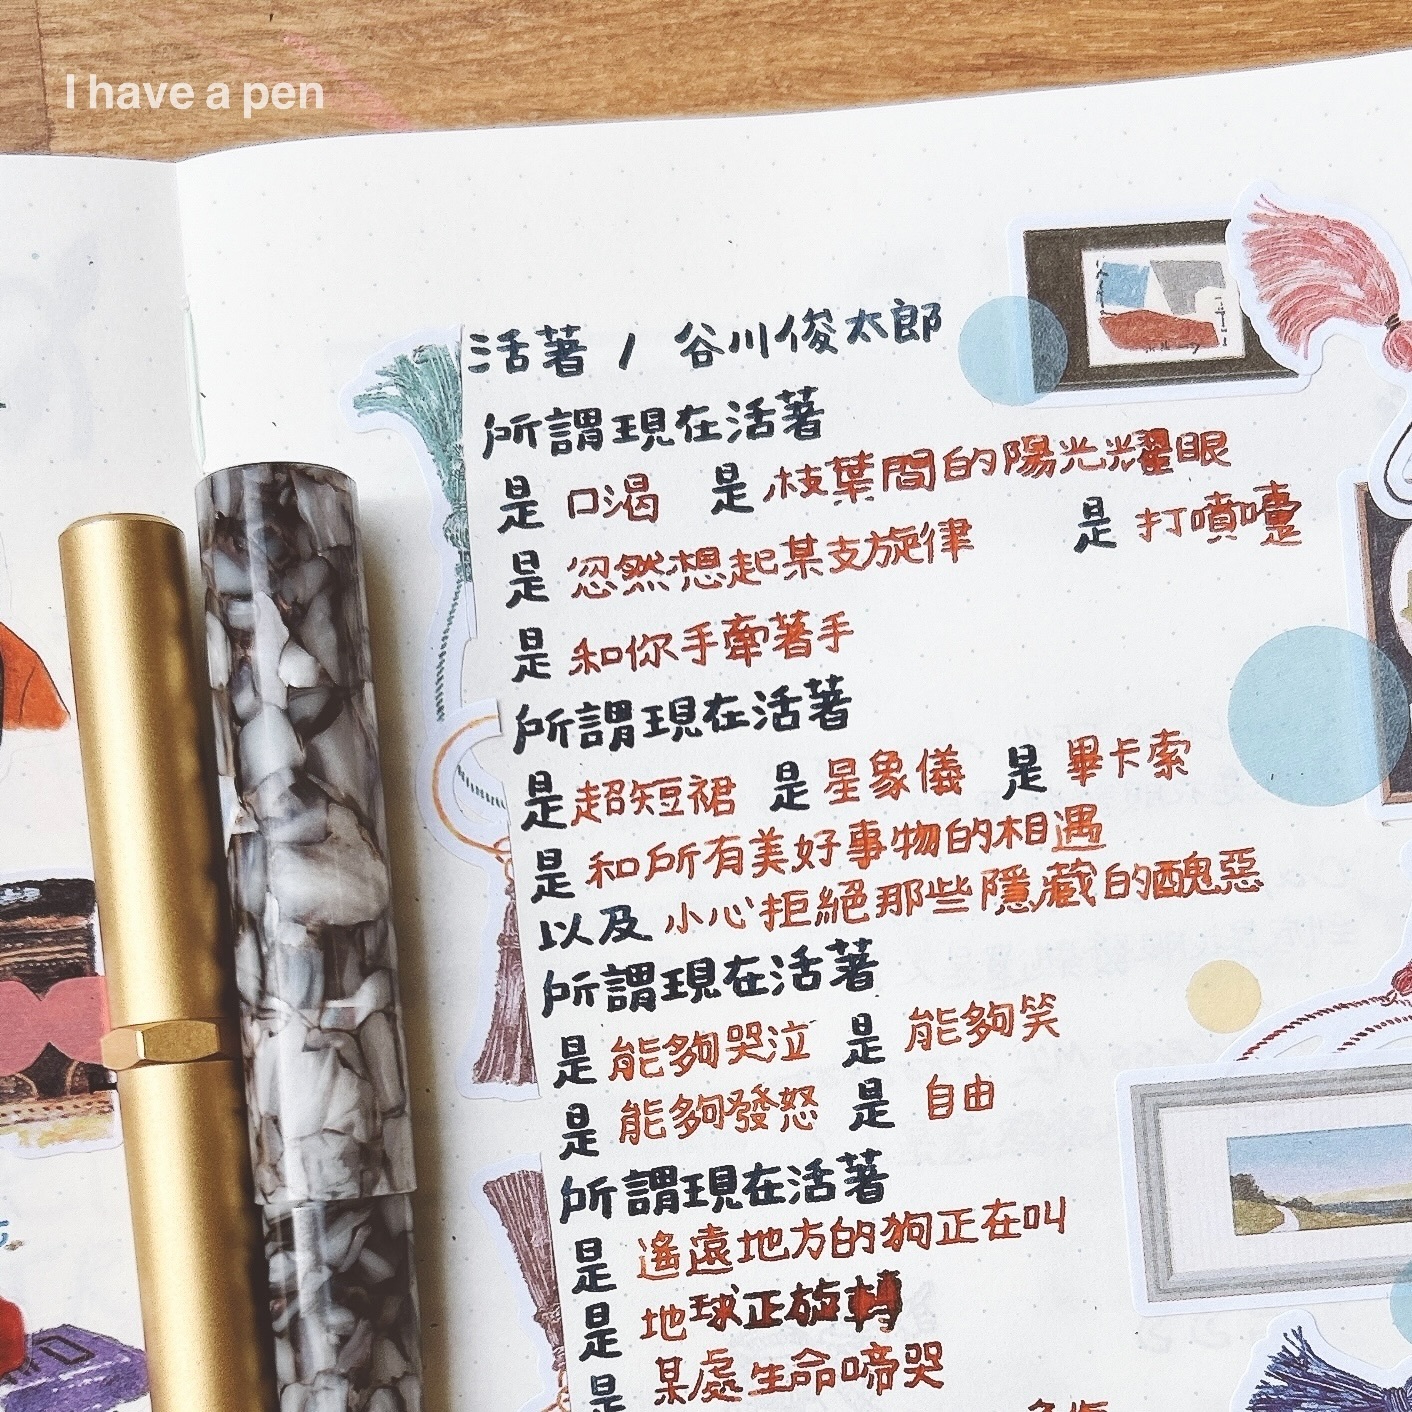 I have a pen
活著 / 谷川俊太郎
所謂現在活著
是 口渴 是 枝葉間的陽光耀眼
是 忽然想起某支旋律 是 打噴嚏
是 和你手牽著手
所謂現在活著
是 超短裙 是 星象儀 是 畢卡索
是 和所有美好事物的相遇
以及 小心拒絕那些隱藏的醜惡
所謂現在活著
是 能夠哭泣 是 能夠笑
是 能夠發怒 是 自由
所謂現在活著
是 遙遠地方的狗正在叫
是 地球正旋轉
是 某處生命啼哭